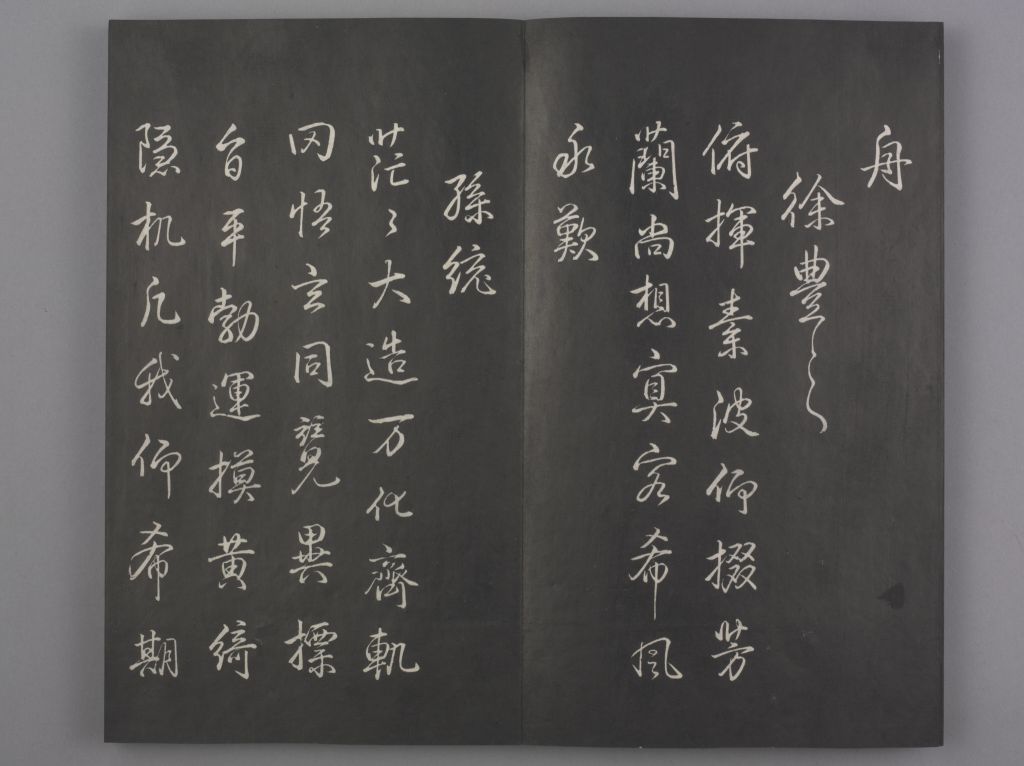 舟
徐豐之
俯揮素波仰掇芳
蘭尚想㝠客希風
永歎
孫統
茫〻大造万化齊軌
罔悟玄同競異摽
旨平勃運摸黃綺
隱机凡我仰希期